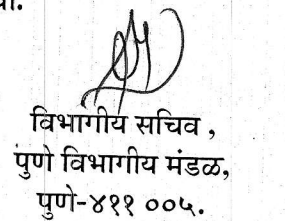 विभागीय सचिव ,
पुणे विभागीय मंडळ,
पुणे-४११ ००५.